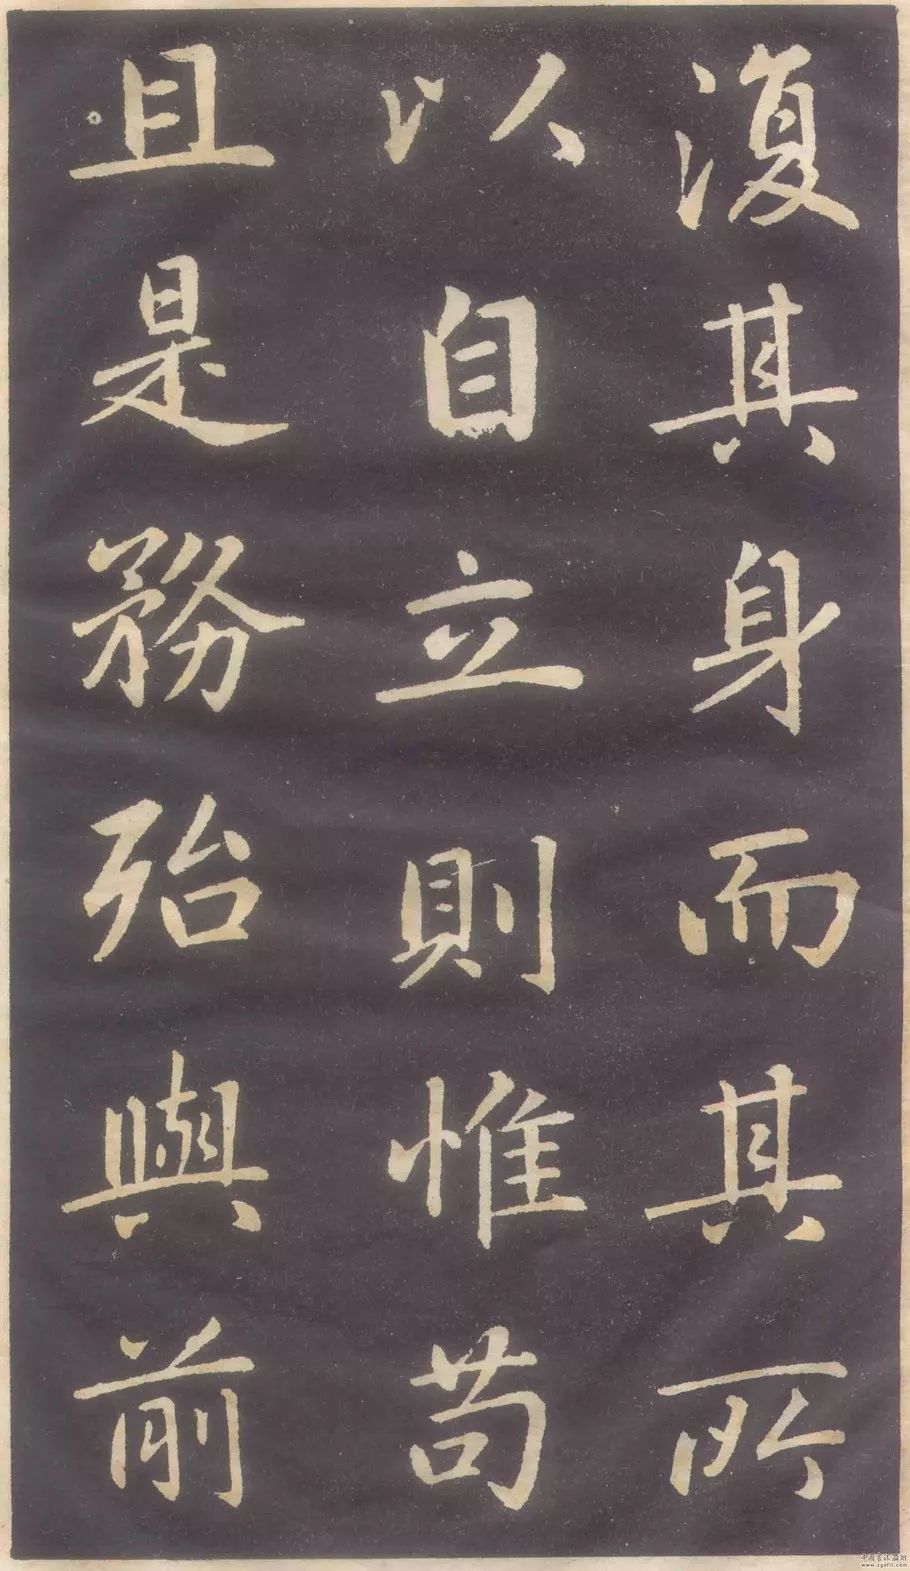 復其身而其所
以自立則惟苟
且是務殆與前